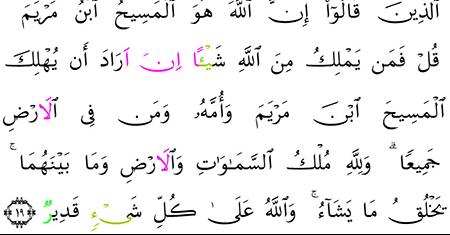 ٱلَّذِينَ قَالُوٓا۟ إِنَّ ٱللَّهَ هُوَ ٱلْمَسِيحُ ٱبْنُ مَرْيَمَ
قُلْ فَمَن يَمْلِكُ مِنَ ٱللَّهِ شَيْـًٔا اِنَ اَرَادَ أَن يُهْلِكَ
ٱلْمَسِيحَ ٱبْنَ مَرْيَمَ وَأُمَّهُۥ وَمَن فِى ٱلَارْضِ
جَمِيعًا ۗ وَلِلَّهِ مُلْكُ ٱلسَّمَـٰوَٰتِ وَٱلَارْضِ وَمَا بَيْنَهُمَا ۚ
يَخْلُقُ مَا يَشَآءُ ۚ وَٱللَّهُ عَلَىٰ كُلِّ شَىْءٍ قَدِيرٌ ١٩